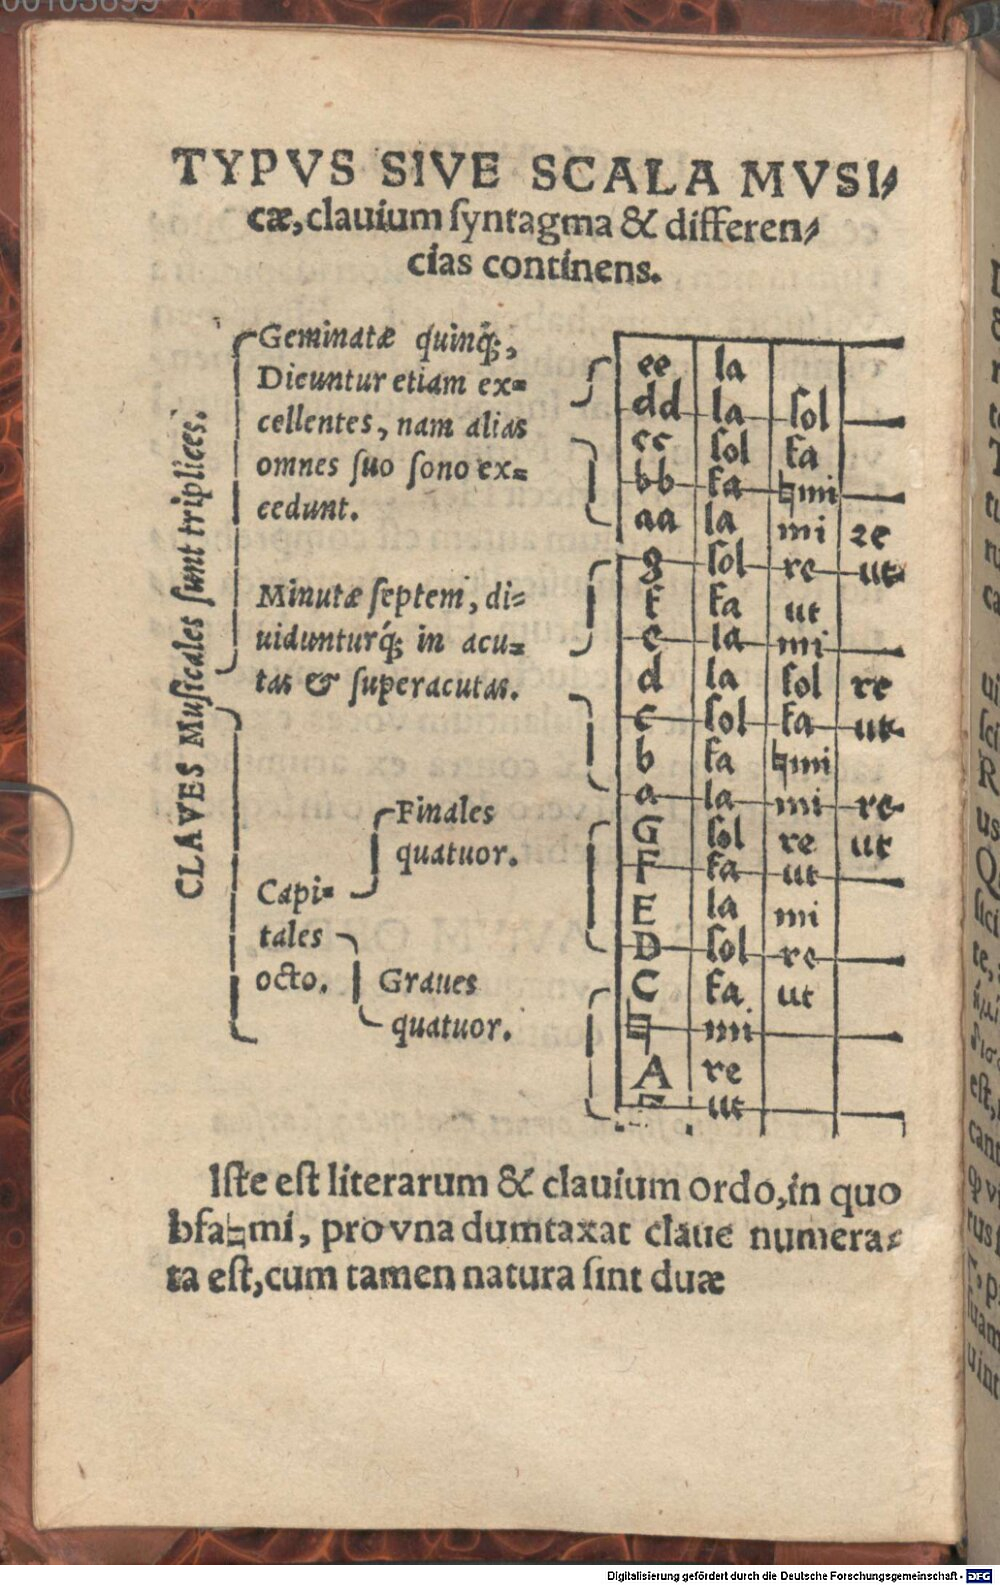 TYPVS SIVE SCALA MVSI⸗
cæ, clauium ſyntagma & differen⸗
cias continens.
CLAVES Muſicales ſunt triplices.
Geminatæ quinq́;,
Dicuntur etiam ex⸗
cellentes, nam alias
omnes ſuo ſono ex⸗
cedunt.
Minutæ ſeptem, di⸗
uidunturq́; in acu⸗
tas & ſuperacutas.
Capi⸗
tales
octo.
Finales
quatuor.
Graues
quatuor.
ee la
dd la ſol
cc ſol fa
bb fa ♮mi
aa la mi re
g ſol re ut
f fa ut
e la mi
d la ſol re
c ſol fa ut
b fa ♮mi
a la mi re
G ſol re ut
F fa ut
E la mi
D ſol re
C fa ut
♮ mi
A re
Γ ut
Iſte eſt literarum & clauium ordo, in quo
bfa♮mi, pro vna dumtaxat claue numera⸗
ta eſt, cum tamen natura ſint duæ
Digitalisierung gefördert durch die Deutsche Forschungsgemeinschaft - DFG